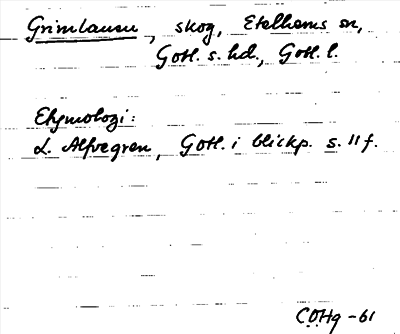 Grimlausu, skog, Etelhems sn,
Gotl. s. hd., Gotl. l.
Etymologi:
L. Alfvegren, Gotl. i blickp. s. 11 f.
CÖHg -61